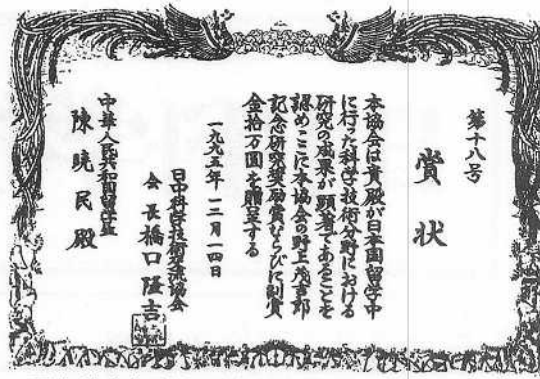 第十八号
賞状
本協会は貴殿が日本国留学中
に行った科学技術分野における
研究の成果が顕著であることを
認めここに本協会の野上茂吉郎
記念研究奨励賞ならびに副賞
金拾万圓を贈呈する
一九九五年一二月一四日
日中科学技術交流協会
会長橋口隆吉
中華人民共和国留学生
陳暁民殿